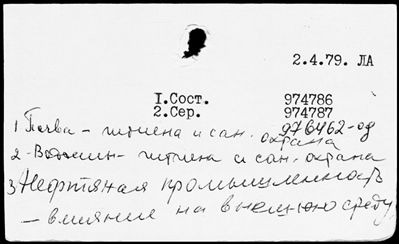 2.4.79. ЛА
I.Сост. 974786
2.Сер. 974787
976462-од
1 Почва - гигиена и сан. охрана
2- гигиена и сан. охрана
3) Нефтяная промышленность
- влияние на внешнюю среду